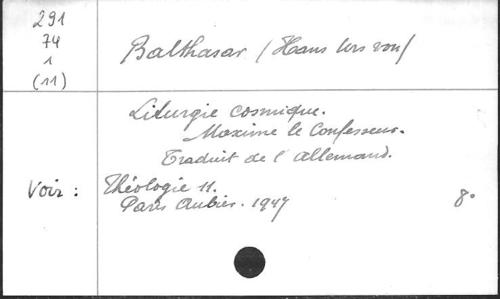 291
74
1
(11)
Balthasar (Hans Urs von)
Liturgie cosmique.
Maxime le Confesseur.
Traduit de l'Allemand.
Voir : Théologie 11.
Paris Aubier. 1947
8°